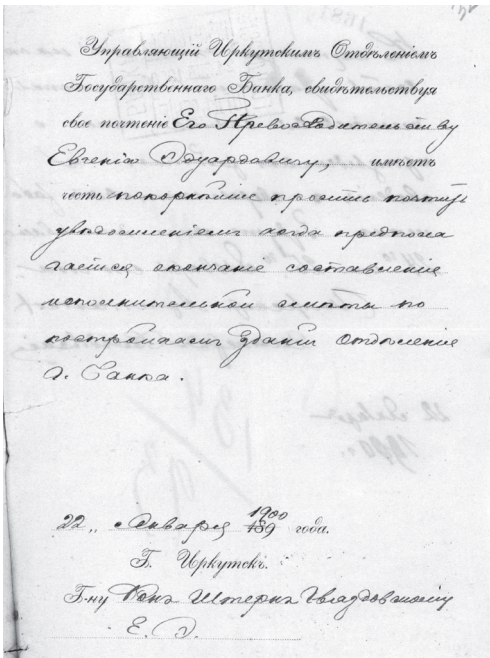 Управляющій Иркутскимъ Отдѣленіемъ
Государственнаго Банка, свидѣтельствуя
свое почтеніе Его Превосходительству
Евгенію Эдуардовичу, имѣетъ
честь покорнѣйше просить почтить
увѣдомленіемъ когда предпола
гается окончаніе составленіе
исполнительной смѣты по
постройкамъ зданій Отдѣленіе
г. Банка.
22 „ Января 1900 189 года.
Г. Иркутскъ.
Г-ну Фонъ Штернъ Гвяздовскому
Е. Э.